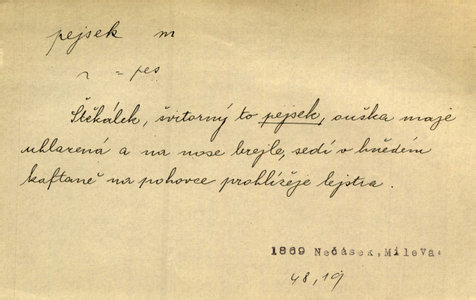 pejsek m
~ = pes
Štěkálek, švitorný to pejsek, ouška maje
uhlazená a na nose brejle, sedí v hnědém
kaftaně na pohovce prohlížeje lejstra.
1869 Nečásek, Mileva.
48, 19